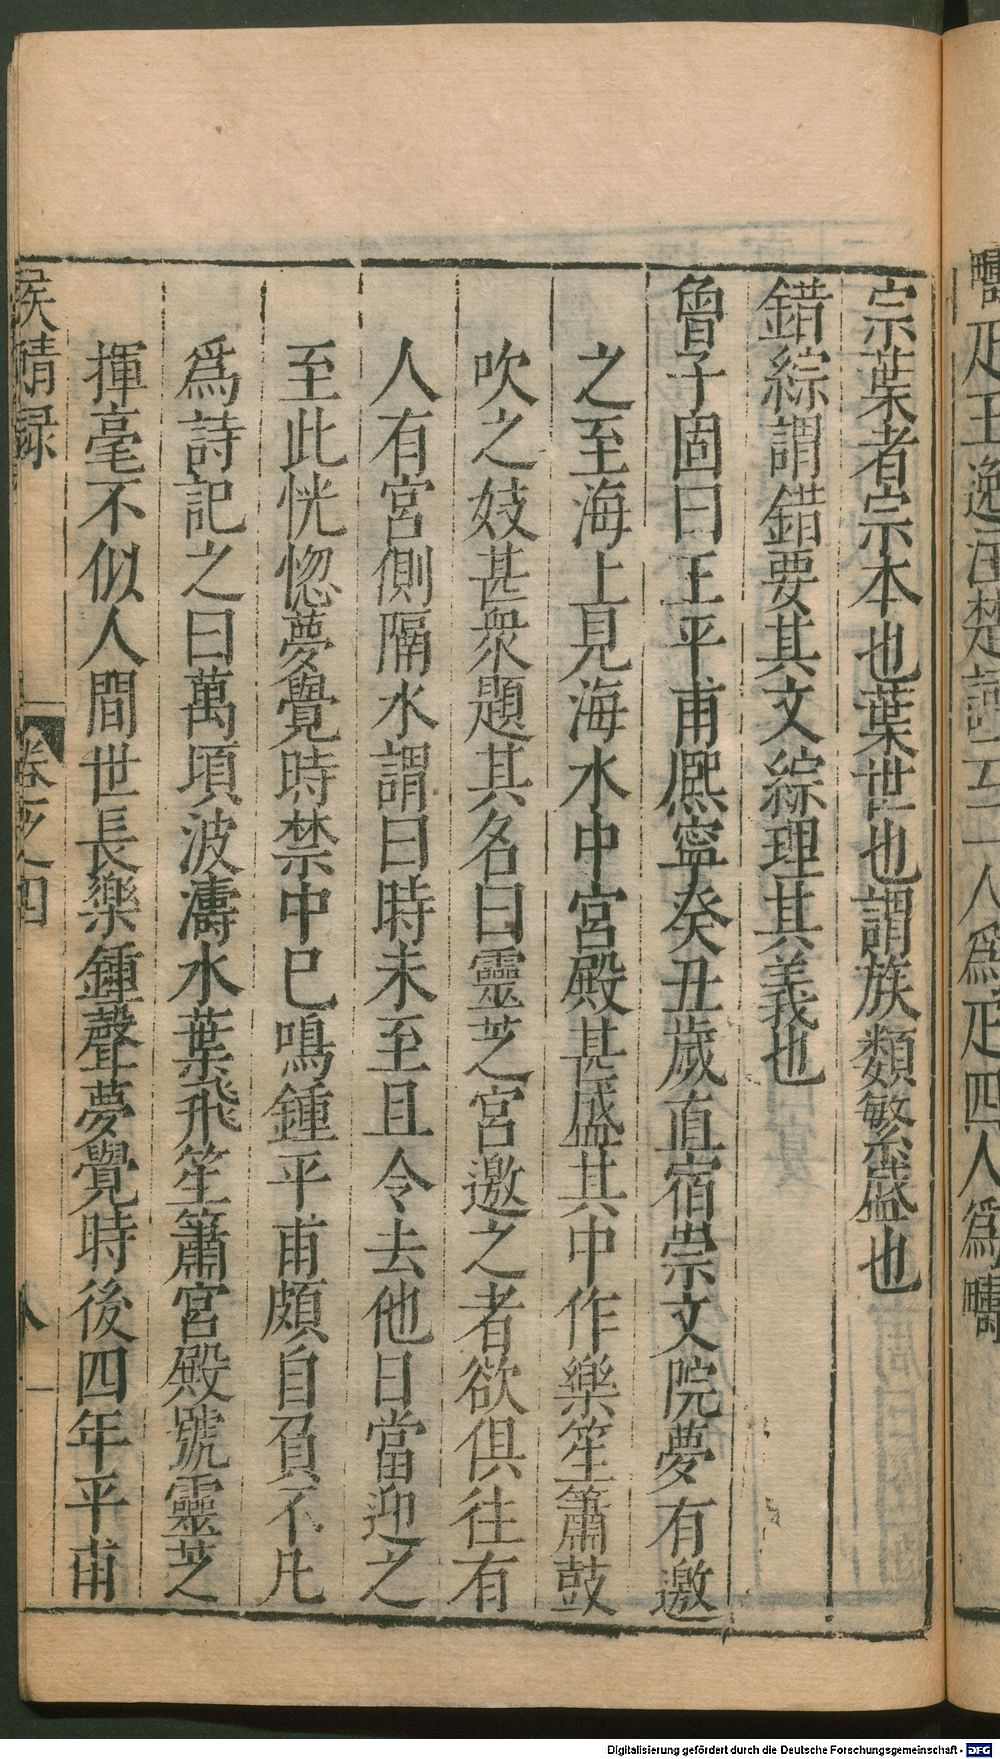 疇疋王逸注楚詞二人爲疋四人爲疇
宗葉者宗本也葉世也謂族類繁盛也
錯綜謂錯要其文綜理其義也
曾子固曰王平甫熈寧癸丑歲直宿崇文院夢有邀
之至海上見海水中宮殿甚盛其中作樂笙簫鼓
吹之妓甚衆題其名曰靈芝宮邀之者欲俱往有
人有宮側隔水謂曰時未至且令去他日當迎之
至此恍惚夢覺時禁中已鳴鍾平甫頗自負不凡
爲詩記之曰萬頃波濤水葉飛笙簫宮殿號靈芝
揮毫不似人間世長樂鍾聲夢覺時後四年平甫
侯鯖録
卷之四
八
Digitalisierung gefördert durch die Deutsche Forschungsgemeinschaft - DFG